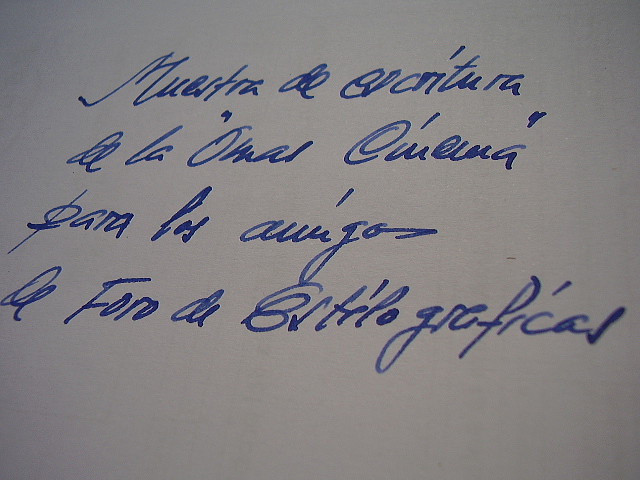 Muestra de escritura
de la "Omas Cinema"
para los amigos
de Foro de Estilograficas